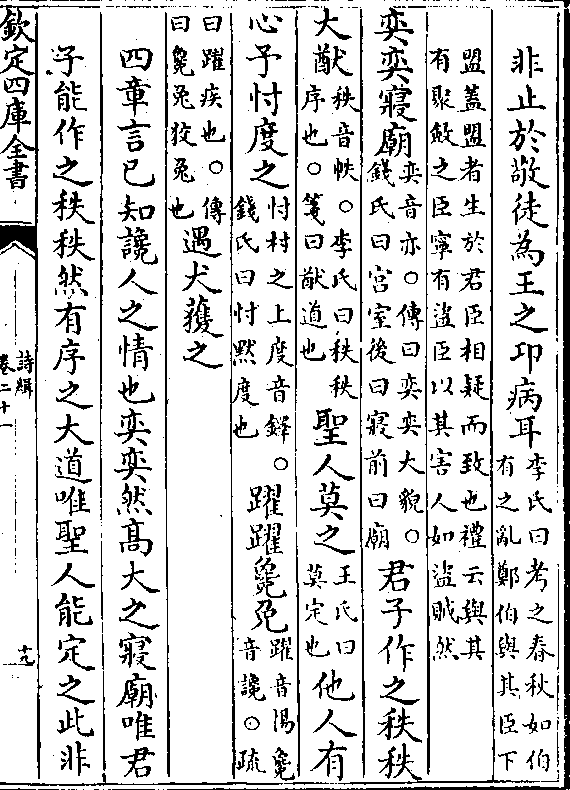 非止於敬徒為王之卭病耳李氏曰考之春秋如伯
有之亂鄭伯與其臣下
盟蓋盟者生於君臣相疑而致也禮云與其
有聚斂之臣寧有盜臣以其害人如盜賊然
奕奕寢廟奕音亦○傳曰奕奕大貌○
錢氏曰宮室後曰寢前曰廟君子作之秩秩
大猷秩音帙○李氏曰秩秩
序也○箋曰猷道也聖人莫之王氏曰
莫定也他人有
心予忖度之忖村之上度音鐸○
錢氏曰忖黙度也躍躍毚兔躍音湯毚
音讒○疏
曰躍疾也○傳
曰毚兔狡兔也遇犬獲之
四章言已知讒人之情也奕奕然髙大之寢廟唯君
子能作之秩秩然有序之大道唯聖人能定之此非
欽定四庫全書
詩緝
卷二十一
十九